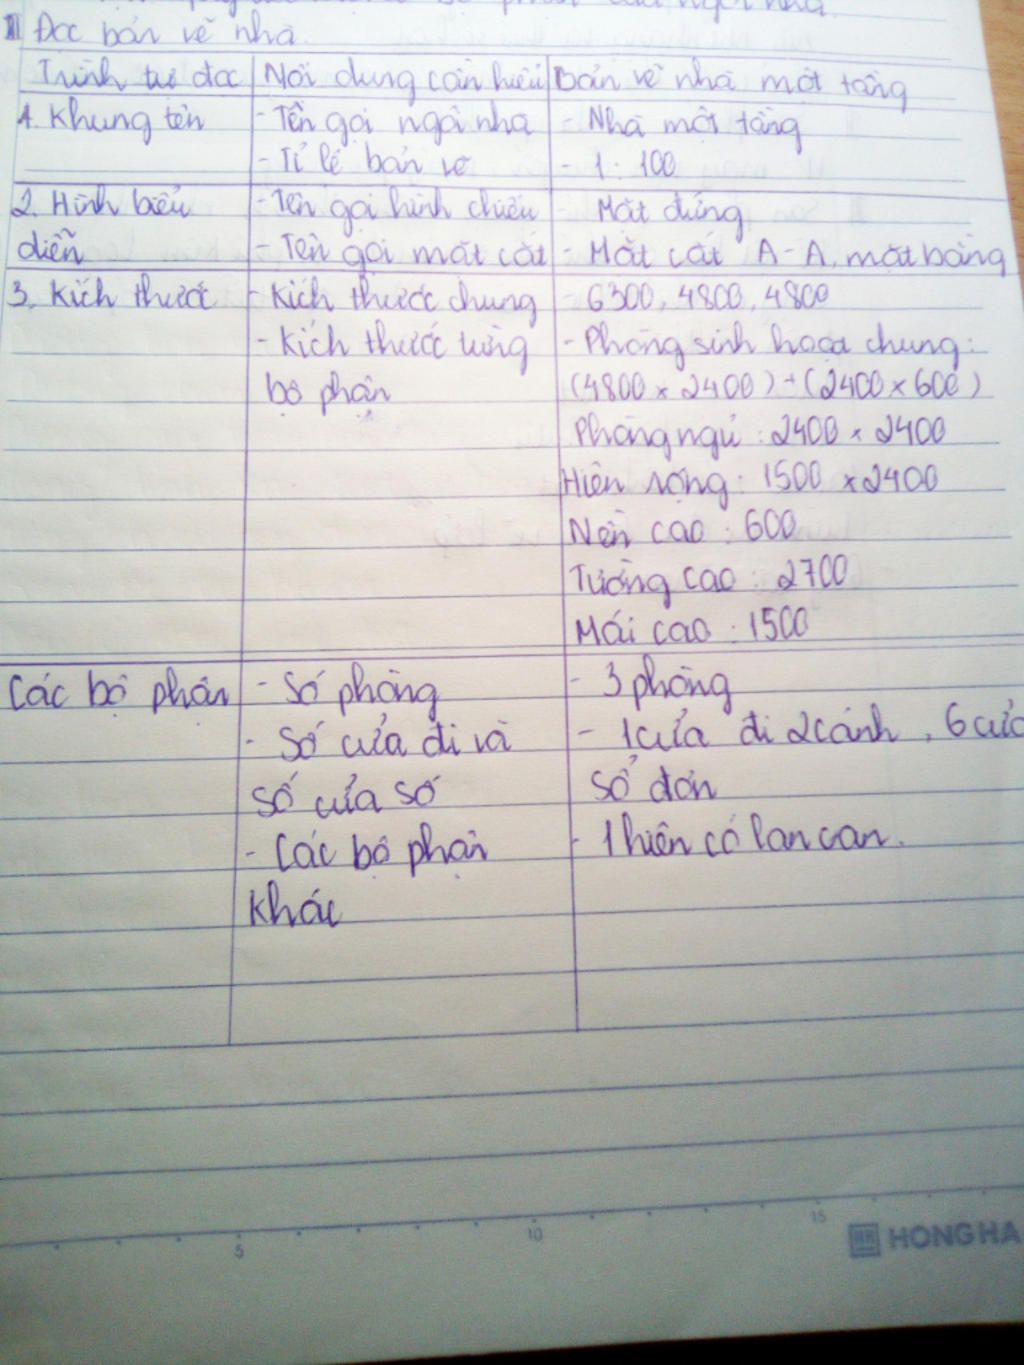 III Đọc bản vẽ nhà.
Trình tự đọc | Nội dung cần hiểu | Bản vẽ nhà một tầng
1. Khung tên | - Tên gọi ngôi nhà | - Nhà một tầng
- Tỉ lệ bản vẽ | - 1 : 100
2. Hình biểu | - Tên gọi hình chiếu | - Mặt đứng
diễn | - Tên gọi mặt cắt | - Mặt cắt A-A, mặt bằng
3. Kích thước | - Kích thước chung | - 6300, 4800, 4800
- Kích thước từng | - Phòng sinh hoạt chung:
bộ phận | (4800 x 2400) + (2400 x 600)
Phòng ngủ : 2400 x 2400
Hiên rộng : 1500 x 2400
Nền cao : 600
Tường cao : 2700
Mái cao : 1500
Các bộ phận | - Số phòng | - 3 phòng
- Số cửa đi và | - 1 cửa đi 2 cánh, 6 cửa
số cửa sổ | sổ đơn
- Các bộ phận | - 1 hiên có lan can.
khác
5 10 15
HONG HA